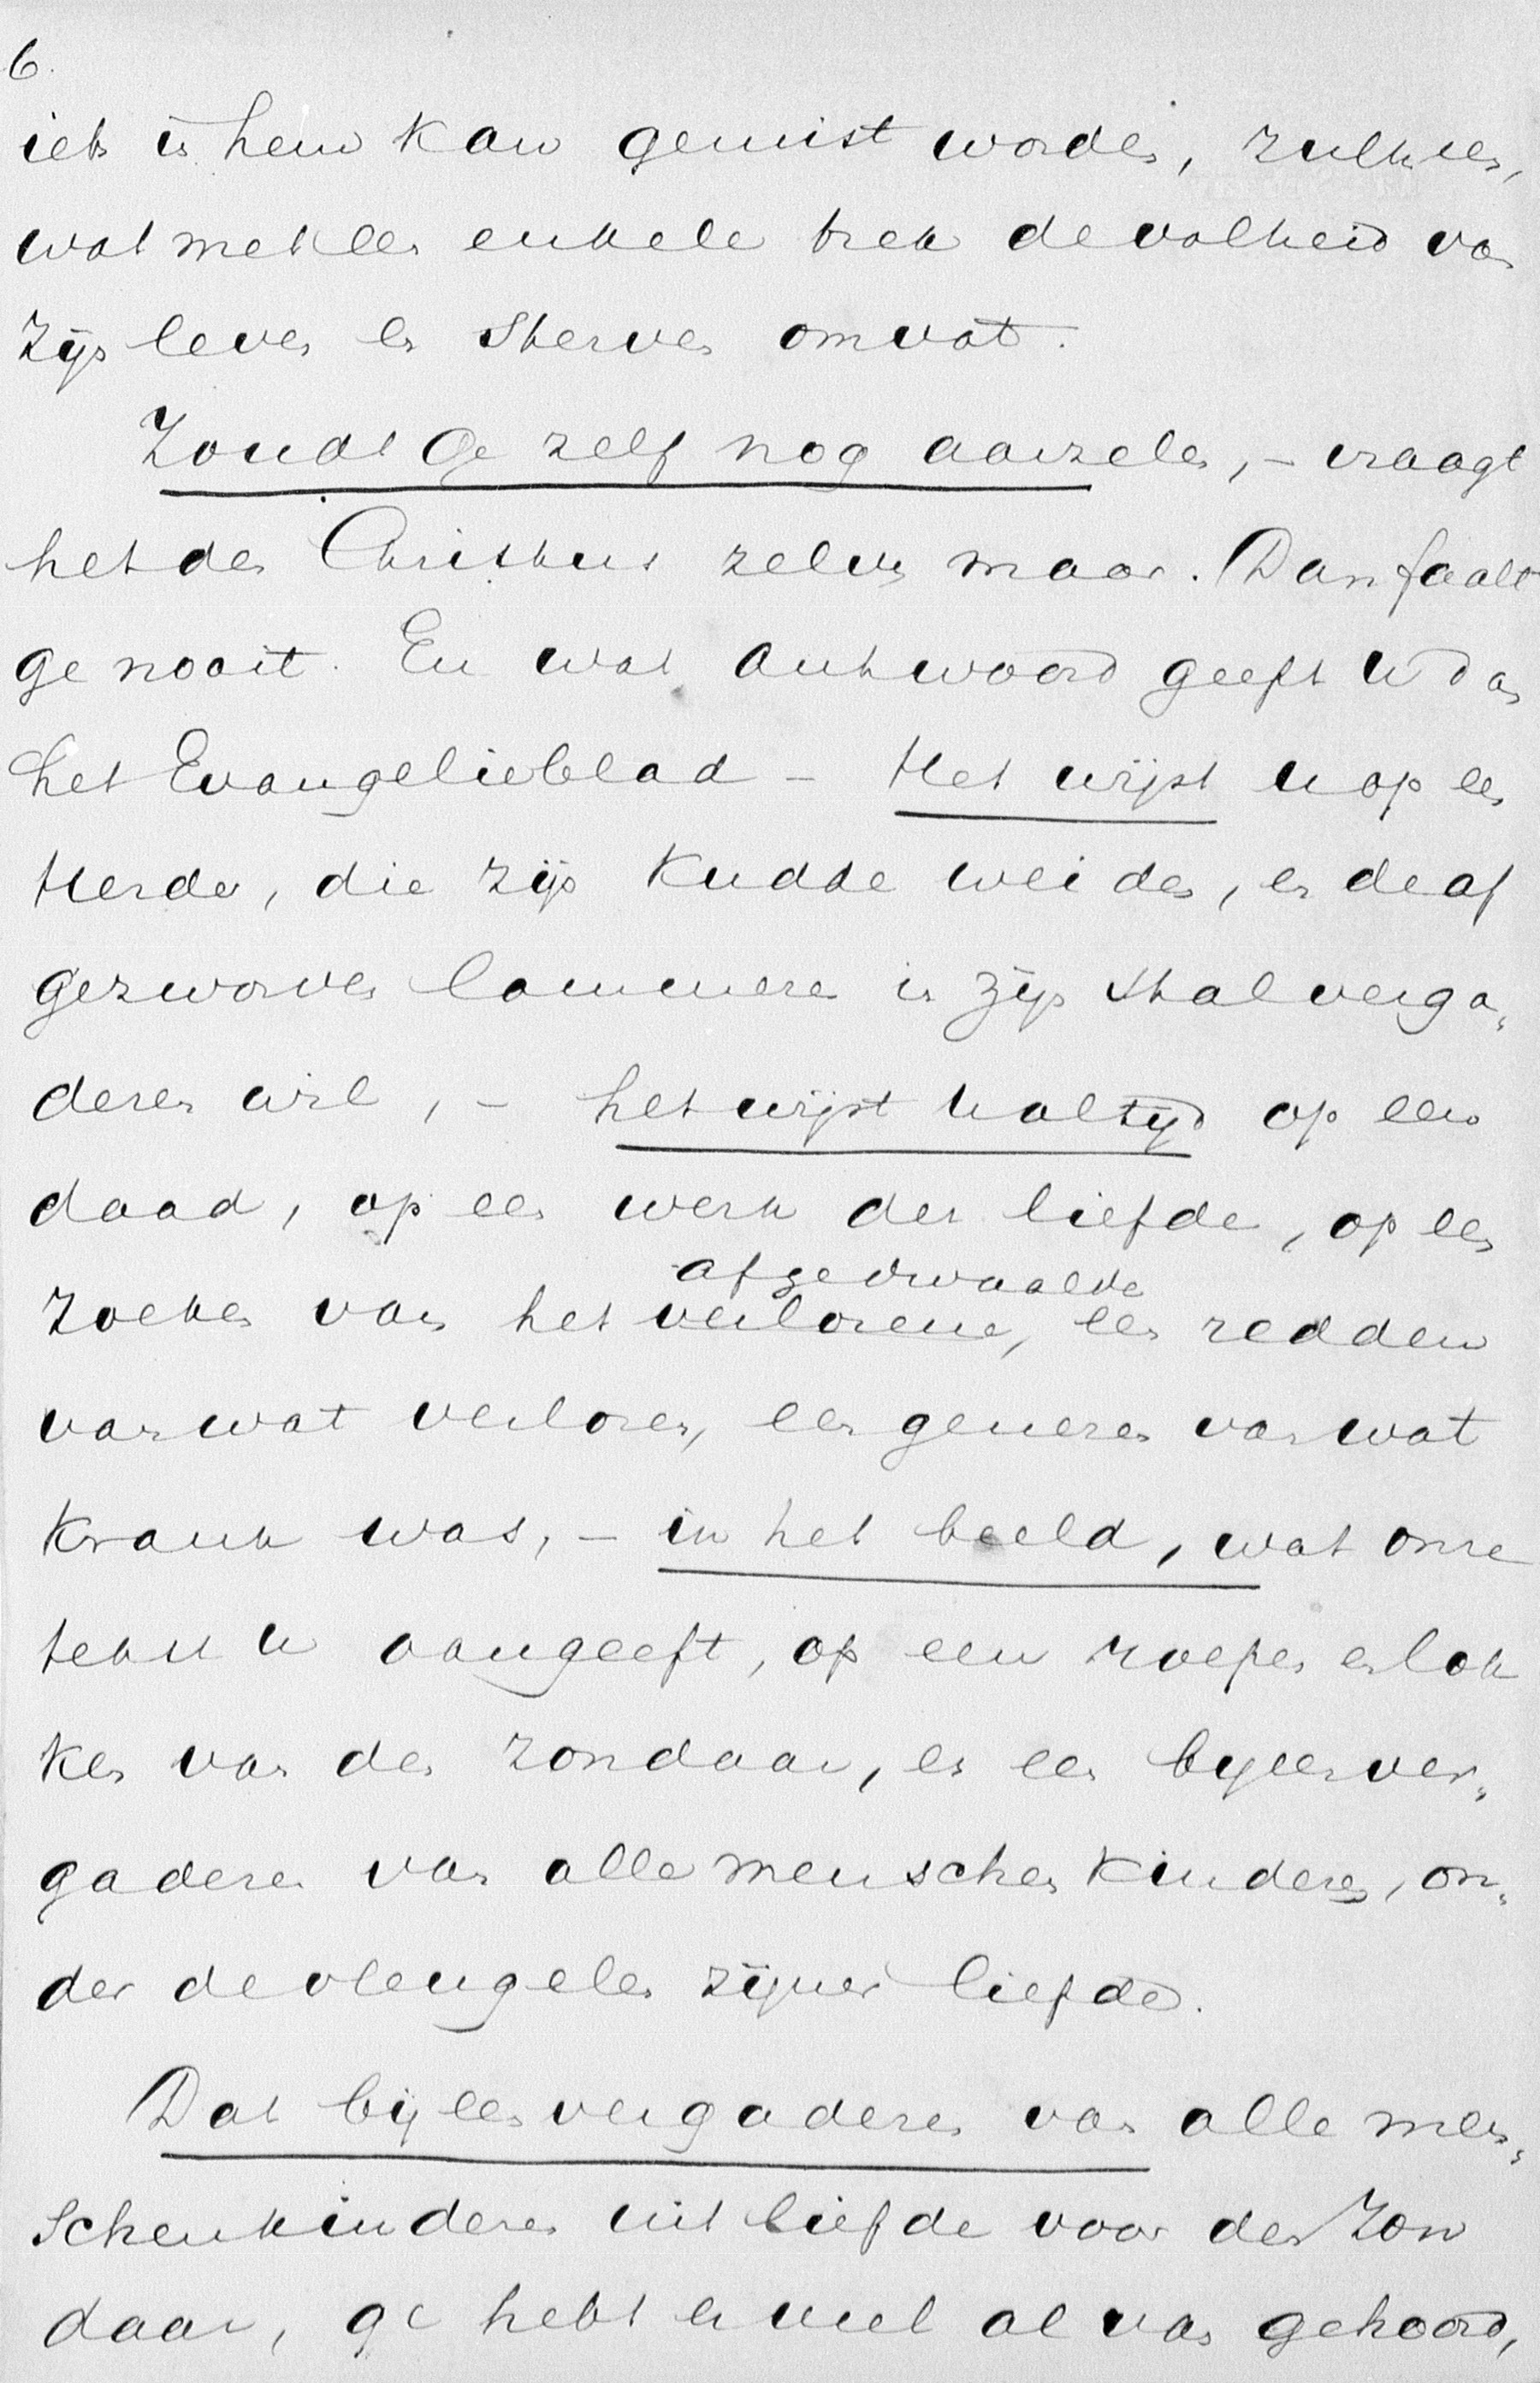 6.
iets in hem kan gemist worden, zulk een,
wat met een enkele trek de volheid van
zijn leven en sterven omvat.
Zoudt Ge zelf nog aarzelen, – vraagt
het den Christus zelven maar. Dan faalt
ge nooit. En wat antwoord geeft U dan
het Evangelieblad – Het wijst u op een
Herder, die zijn kudde weiden, en de af
gezworven lammeren in zijn stal verga„
deren wil, – het wijst U altijd op een
daad, op een werk der liefde, op een
afgedwaalde
zoeken van het verlorene, een redden
van wat verloren, een genezen van wat
krank was, – in het beeld, wat onze
tekst U aangeeft, op een roepen en lok
ken van den zondaar, en een byeenver„
gaderen van alle menschenkinderen, on„
der de vleugelen zijner liefde.
Dat bijeenvergaderen van alle men„
schenkinderen uit liefde voor den Zon
daar, ge hebt er veel al van gehoord,